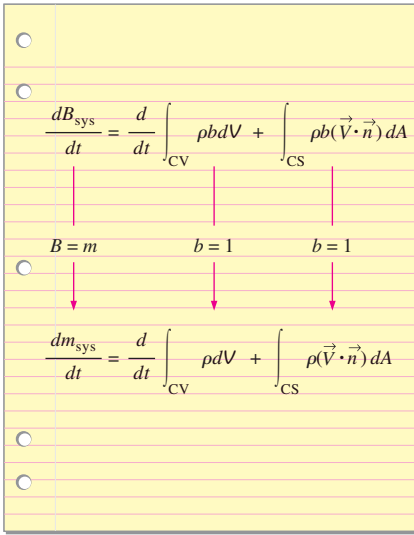 dB_sys/dt = d/dt ∫_CV ρb dV + ∫_CS ρb(V⃗ · n⃗) dA
B = m b = 1 b = 1
dm_sys/dt = d/dt ∫_CV ρ dV + ∫_CS ρ(V⃗ · n⃗) dA